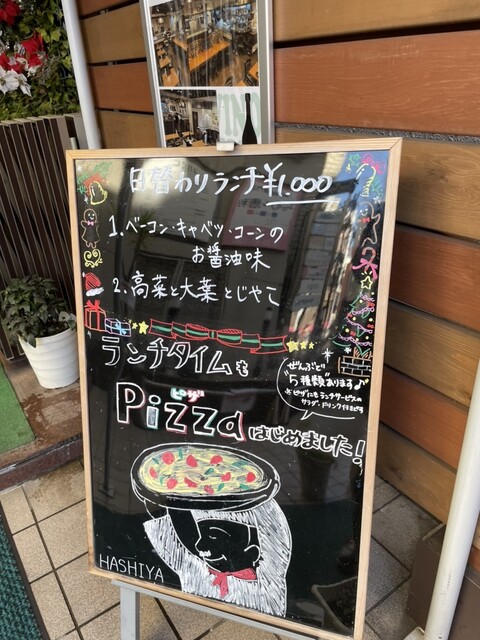 日替わりランチ¥1,000
1.ベーコン・キャベツ・コーンの
お醤油味
2.高菜と大葉とじゃこ
ランチタイムも
ぜんぶで
5種類あります♪
※ピザにもランチサービスの
サラダ、ドリンク付きです
ピザ
Pizza はじめました!
HASHIYA